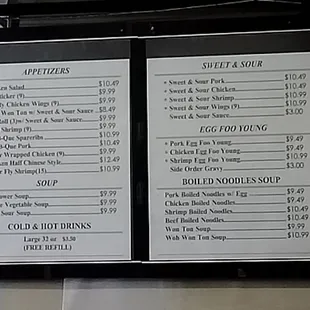 APPETIZERS
en Salad $10.49
ticker (9) $9.99
y Chicken Wings (9) $9.99
Won Ton w/ Sweet & Sour Sauce $8.49
all (3)w/ Sweet & Sour Sauce $9.99
Shrimp (9) $9.99
-Que Spareribs $10.99
-Que Pork $10.49
r Wrapped Chicken (9) $9.99
an Half Chinese Style $12.49
r Fly Shrimp(15) $10.99
SOUP
ower Soup $9.99
e Vegetable Soup $9.99
Sour Soup $9.99
COLD & HOT DRINKS
Large 32 oz $3.50
(FREE REFILL)
SWEET & SOUR
Sweet & Sour Pork $10.49
Sweet & Sour Chicken $10.49
Sweet & Sour Shrimp $10.99
Sweet & Sour Wings (9) $10.99
Sweet & Sour Sauce $3.00
EGG FOO YOUNG
Pork Egg Foo Young $9.49
Chicken Egg Foo Young $9.49
Shrimp Egg Foo Young $10.99
Side Order Gravy $3.00
BOILED NOODLES SOUP
Pork Boiled Noodles w/ Egg $9.49
Chicken Boiled Noodles $9.49
Shrimp Boiled Noodles $10.49
Beef Boiled Noodles $10.49
Won Ton Soup $9.99
Wah Won Ton Soup $10.99